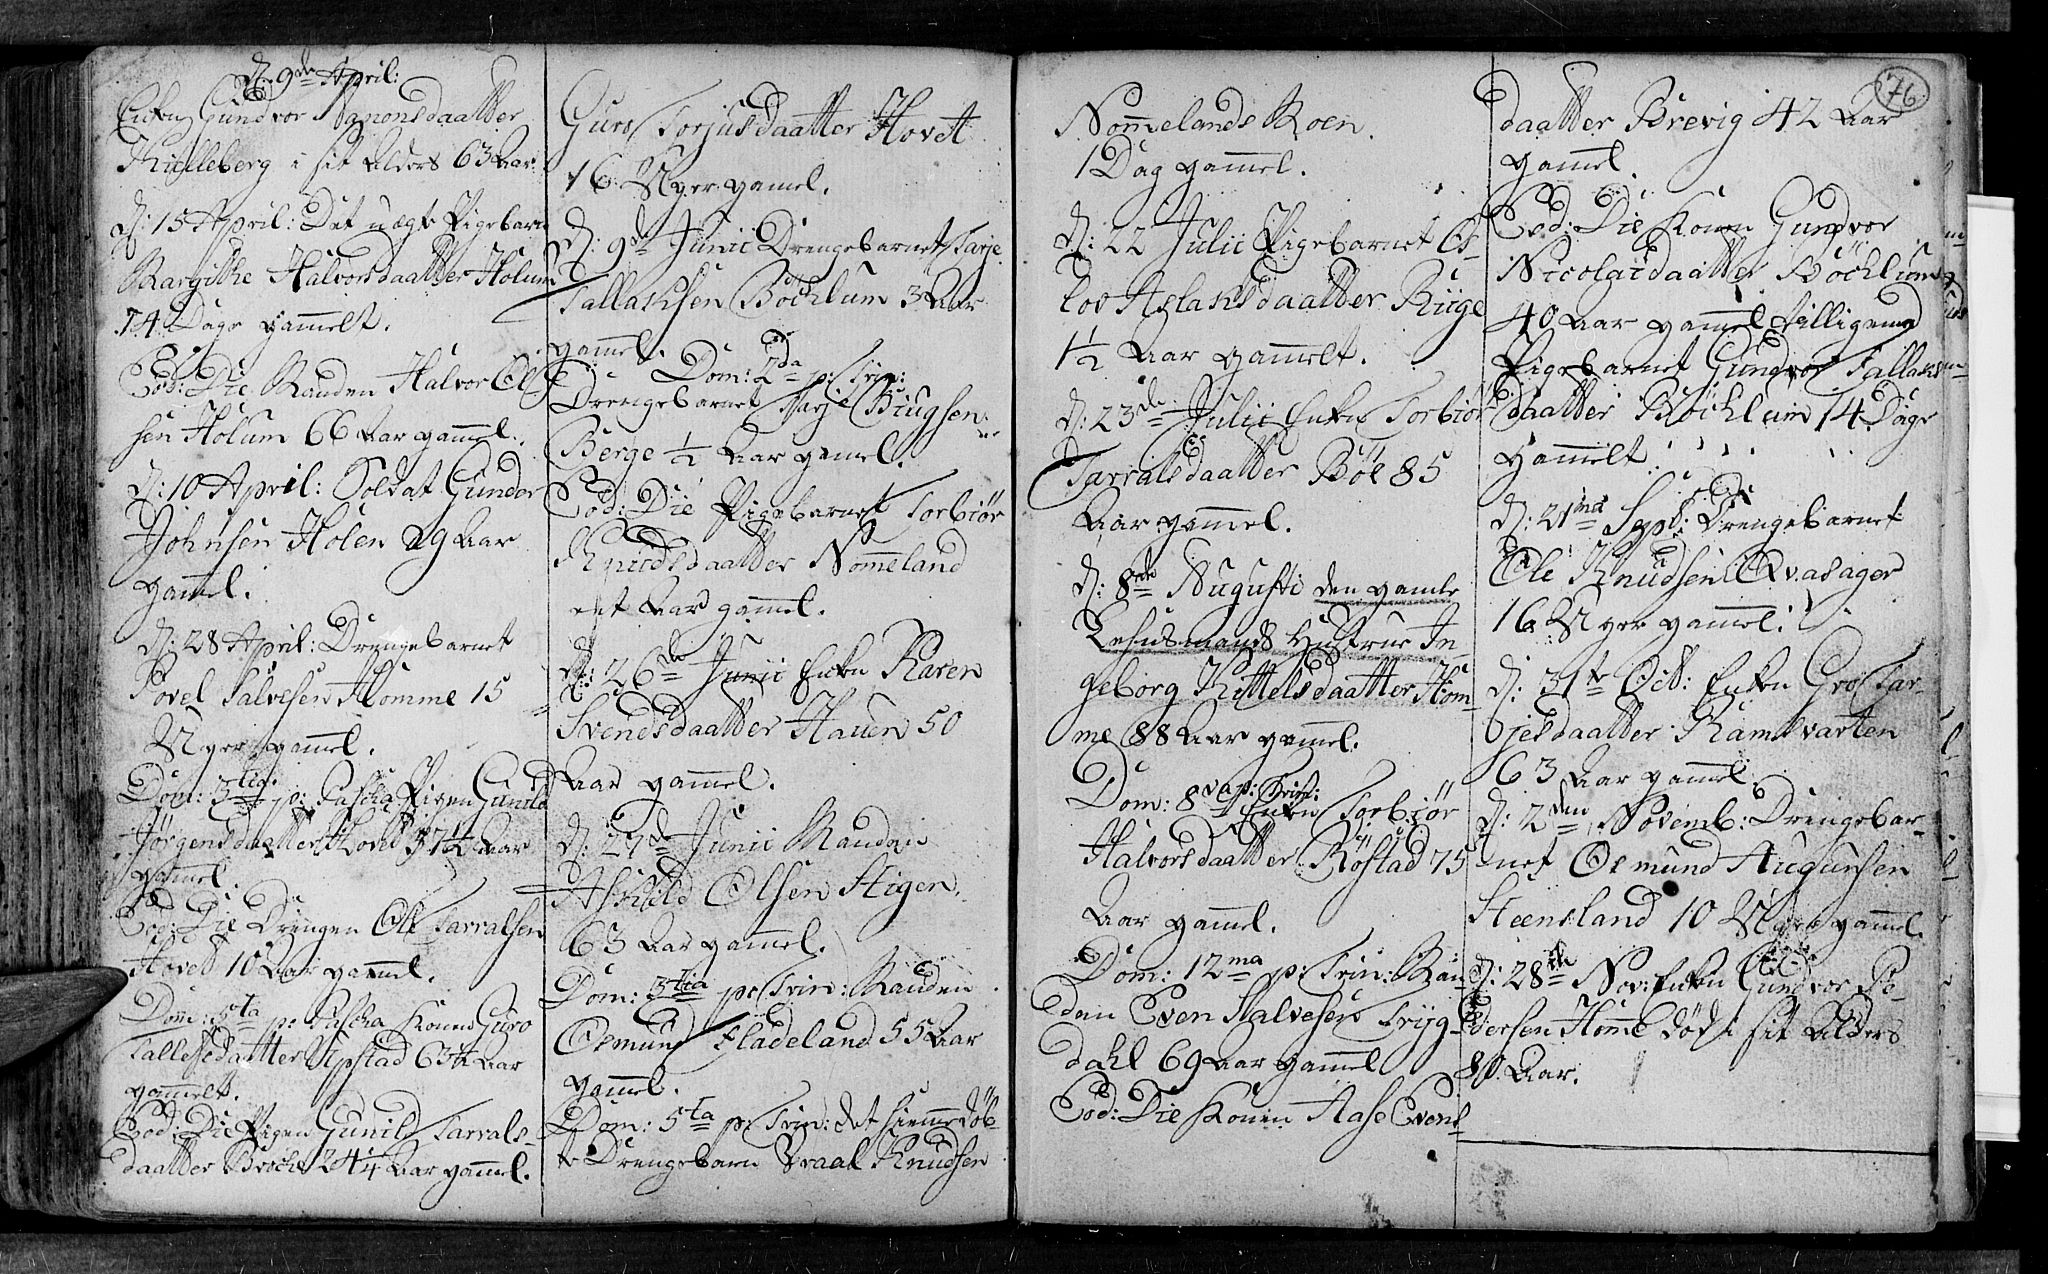 D: 9de April:
Enken Gundvor Aanonsdaatter
Kulleberg i sit Alders 63 Aar.
D: 15 April: Det uægte Pigebarn
Margithe Halvorsdaatter Holum
14 Dage gammelt.
Eod: Die Manden Halvor Ol
sen Holum 66 Aar gammel.
D: 10 April: Soldat Gunder
Johnsen Holen 29 Aar
gammel.
D: 28 April: Drengebarnet
Povel Salvesen Homme 15
Uger gammel.
Dom: 3tia p: Pascha Pigen Gunild
Jørgensdaatter Hovet 37½ Aar
gammel.
Eod: Die Drengen Ole Tarralsen
Hovet 10 Aar gammel.
Dom: 5ta p: Pascha Konen Guro
Tallefsdaatter Upstad 63¼ Aar
gammelt.
Eod: Die Pigen Gunild Tarrals-
daatter Brocke 24¼ Aar gammel.
Guro Torjusdaatter Hovet
16 Uger gammel.
D: 9de Junii Drengebarnet Tarje
Tallaksen Bøchlum 3 Aar
gammel.
Dom: 2da p: Trin:
Drengebarnet Tarje Biugsen
Berge ½ Aar gammel.
Eod: Die Pigebarnet Torbiør
Knudsdaatter Nommeland
eet Aar gammel.
D: 26de Junii Enken Karen
Svendsdaatter Hauen 50
Aar gammel.
D: 27de Junii Manden
Asuld Olsen Stigen
63 Aar gammel.
Dom: 3tia p: Trin: Manden
Osmund Fladeland 55 Aar
gammel.
Dom: 5ta p: Trin: det hiemmedøb-
te Drengebarn Vraal Knudsen
76
Nommelands Moen.
1 Dag gammel.
D: 22 Julii Pigebarnet Os-
lov Aslaksdaatter Riige
1½ Aar gammelt.
D: 23de Julii Enken Torbiør
Tarralsdaatter Bøe 85
Aar gammel.
D: 8de Augusti den gamle
Lehnsmands Hustrue In-
geborg Kittelsdaatter Hom-
me 88 Aar gammel.
Dom: 8va p: Trin:
Enken Torbiør
Halvorsdaatter Røstad 75
Aar gammel.
Dom: 12ma p: Trin: Man-
den Even Salvesen Tryg-
dahl 69 Aar gammel
Eod: Die Konen Aase Evens-
daatter Brevig 42 Aar
gammel.
Eod: Die Konen Gundvor
Nicolaidaatter Bøchlum
40 Aar gammel tilligemed
Pigebarnet Gundvor Tallaks-
daatter Bøchlum 14 Dage
gammelt.
D: 21ma Sept: Drengebarnet
Ole Knudsen Qvasager
16 Uger gammel.
D: 31te Oct: Enken Gro Tar-
jesdaatter Ramsvarten
63 Aar gammel.
D: 2den Novemb: Drengebar-
net Osmund Augunsen
Steensland 10 Uger gammel.
D: 28de Nov: Enken Gundvor Pe-
dersen Homme død i sit Alders
80 Aar.